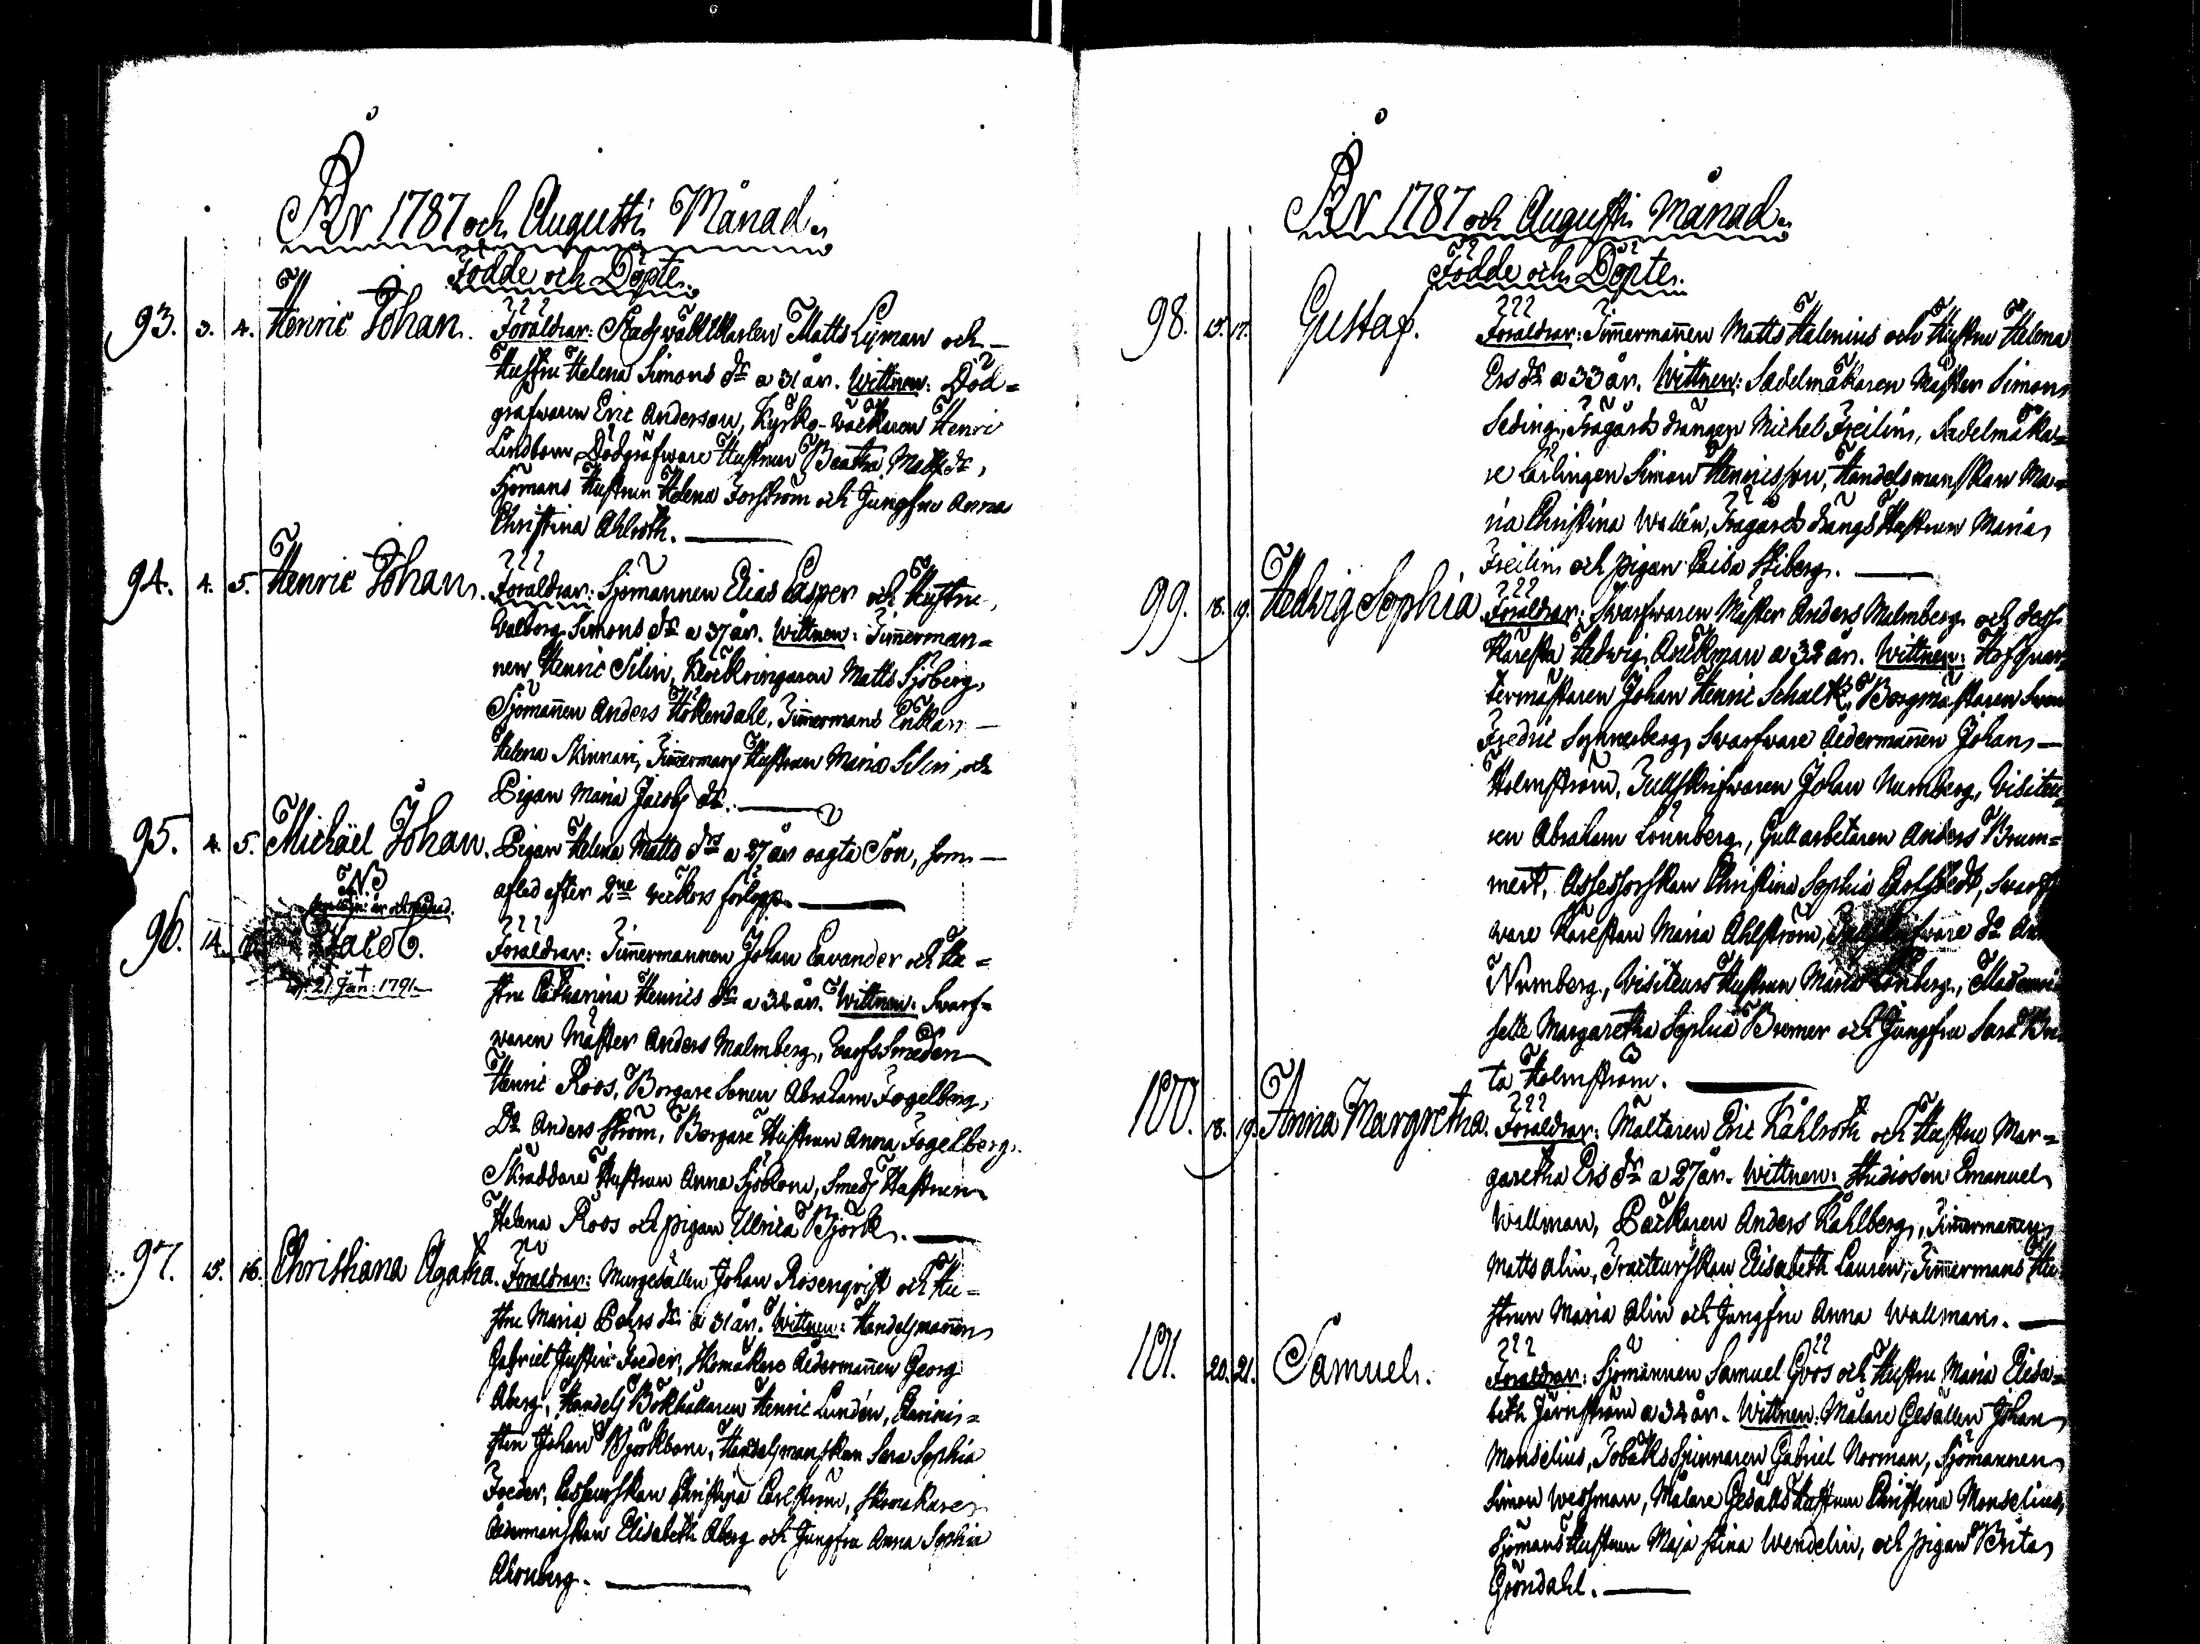 År 1787 och Augusti Månad.
Födde och Döpte.
93. 3. 4. Henric Johan. Föräldrar: Stadswaktkarlen Matts Lyman och
Hustru Helena Simons dr a 31 år. Wittnen: Död=
gräfwaren Eric Anderson, Kyrko-wäcktaren Henric
Lindbom, Dödgräfware Hustrun Beatha Matts dr,
Sjömans Hustrun Helena Forström och Jungfru Anna
Christina Ahlroth.
94. 4. 5. Henric Johan. Föräldrar: Sjömannen Elias Casper och Hustru
Valborg Simons dr a 37 år. Wittnen: Timmerman=
nen Henric Silin, Klockringaren Matts Sjöberg,
Sjömannen Anders Hökendahl, Timmermans Enkan
Helena Kinnari, Timmermans Hustrun Maria Silin, och
Pigan Maria Jacobs dr.
95. 4. 5. Michaël Johan. Pigan Helena Matts drs a 27 år oägta Son, som
afled efter 2ne veckors förlopp.
96. 14. Jacob. Föräldrar: Timmermannen Johan Cavander och Hu=
21 Jan: 1791
stru Catharina Henrics dr a 32 år. Wittnen: Swarf=
waren Mäster Anders Malmberg, Varfs Smeden
Henric Roos, Borgare Sonen Abraham Fogelberg,
Do Anders Ström, Borgare Hustrun Anna Fogelberg,
Skräddare Hustrun Anna Sjöblom, Smeds Hustrun
Helena Roos och pigan Ulrica Björk.
97. 15. 16. Christiana Agatha. Föräldrar: Murgesällen Johan Rosenqvist och Hu=
stru Maria Pehrs dr a 31 år. Wittnen: Handelsmannen
Gabriel Justin Foeder, Skomakare Åldermannen Georg
Åberg, Handels Bokhållaren Henric Lundén,
Johan Björkbom, Handelsmanskan Sara Sophia
Foeder, Christina Carlström, Skomakare
Åldermanskan Elisabeth Åberg och Jungfru Anna Sophia
År 1787 och Augusti Månad.
Födde och Döpte.
98. 15. 17. Gustaf. Föräldrar: Timmermannen Matts Halenius och Hustru Helena
Ers dr a 33 år. Wittnen: Sadelmakaren Mäster Simon
Trägårds drängen Michel Freilin, Sadelmaka=
re Lärlingen Simon Henricsson, Handelsmanskan Ma=
ria Christina Wallén, Trägårds drängs Hustrun Maria
Freilin och pigan Caisa Stiberg.
99. 18. 19. Hedvig Sophia. Föräldrar: Swarfwaren Mäster Anders Malmberg och dess
Käresta Hedwig a 32 år. Wittnen: Hofquar
termästaren Johan Henric Schalk, Borgmästaren Sven
Fredric Swarfware Åldermannen Johan
Holmström, Tullskrifwaren Johan Nurnberg, Visiteu
ren Abraham Lönnberg, Gullarbetaren Anders Brum=
mert, Assessorskan Christina Sophia Swarf
ware Kärestan Maria Ahlström,
Nurnberg, Visiteurs Hustrun Maria Lönberg, Mademoi
selle Margaretha Sophia Bremer och Jungfru Sara Bri
ta Holmström.
100. 18. 19. Anna Margretha. Föräldrar: Mältaren Eric Kahlroth och Hustru Mar=
garetha Ers dr a 27 år. Wittnen: Studiosen Emanuel
Wallman, Packaren Anders Kahlberg, Timmermannen
Matts Alin, Tracteurskan Elisabeth Lauren, Timmermans Hu
strun Maria Alin och Jungfru Anna Wallman.
101. 20. 21. Samuel. Föräldrar: Sjömannen Samuel Goos och Hustru Maria Elisa=
beth Järnström a 32 år. Wittnen: Målare Gesällen Johan
Monselius, Tobaks Spinnaren Gabriel Norman, Sjömannen
Simon Wessman, Målare Gesälls Hustrun Christina Monselius,
Sjömans Hustrun Maja Stina Wendelin, och pigan Brita
Gröndahl.